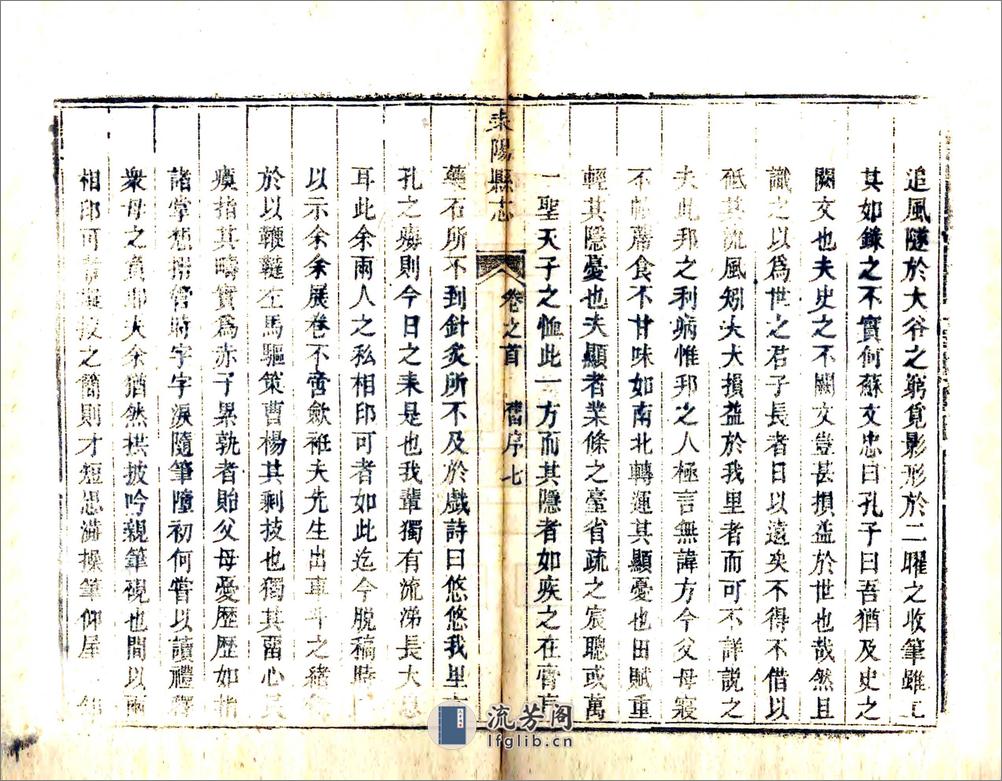 追風隧於大谷之窮覓影形於二曜之收筆雖工
其如錄之不實何蘇文忠曰孔子曰吾猶及史之
闕文也夫史之不闕文豈甚損益於世也哉然且
識之以爲世之君子長者日以遠矣不得不借以
砥其流風矧夫大損益於我里者而可不詳說之
夫此邦之利病惟邦之人極言無諱方今父母寢
不帖蓆食不甘味如南北轉運其顯憂也田賦重
輕其隱憂也夫顯者業條之臺省疏之宸聰或萬
一聖天子之恤此一方而其隱者如疾之在膏肓
耒陽縣志
卷之首
舊序七
藥石所不到針灸所不及於戲詩曰悠悠我里亦
孔之痗則今日之耒是也我輩獨有流涕長大息
耳此余兩人之私相印可者如此迄今脫稿時
以示余余展卷不啻歛袵夫先生出車斗之緒
於以鞭韃左馬驅策曹楊其剩技也獨其留心民
瘼指其疇實爲赤子累孰者貽父母憂歷歷如指
諸掌想搦管時字字淚隨筆墮初何嘗以讀禮釋
衆母之負耶大余猶然栱披吟親筆硯也間以兩
相印可之簡則才短思澁操筆仰屋
流芳阁
lfglib.cn